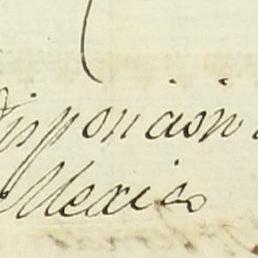 Disposicion
Mexico